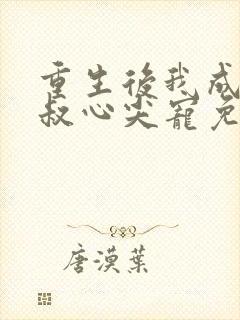 重生後我成
叔心尖寵免
唐漠葉